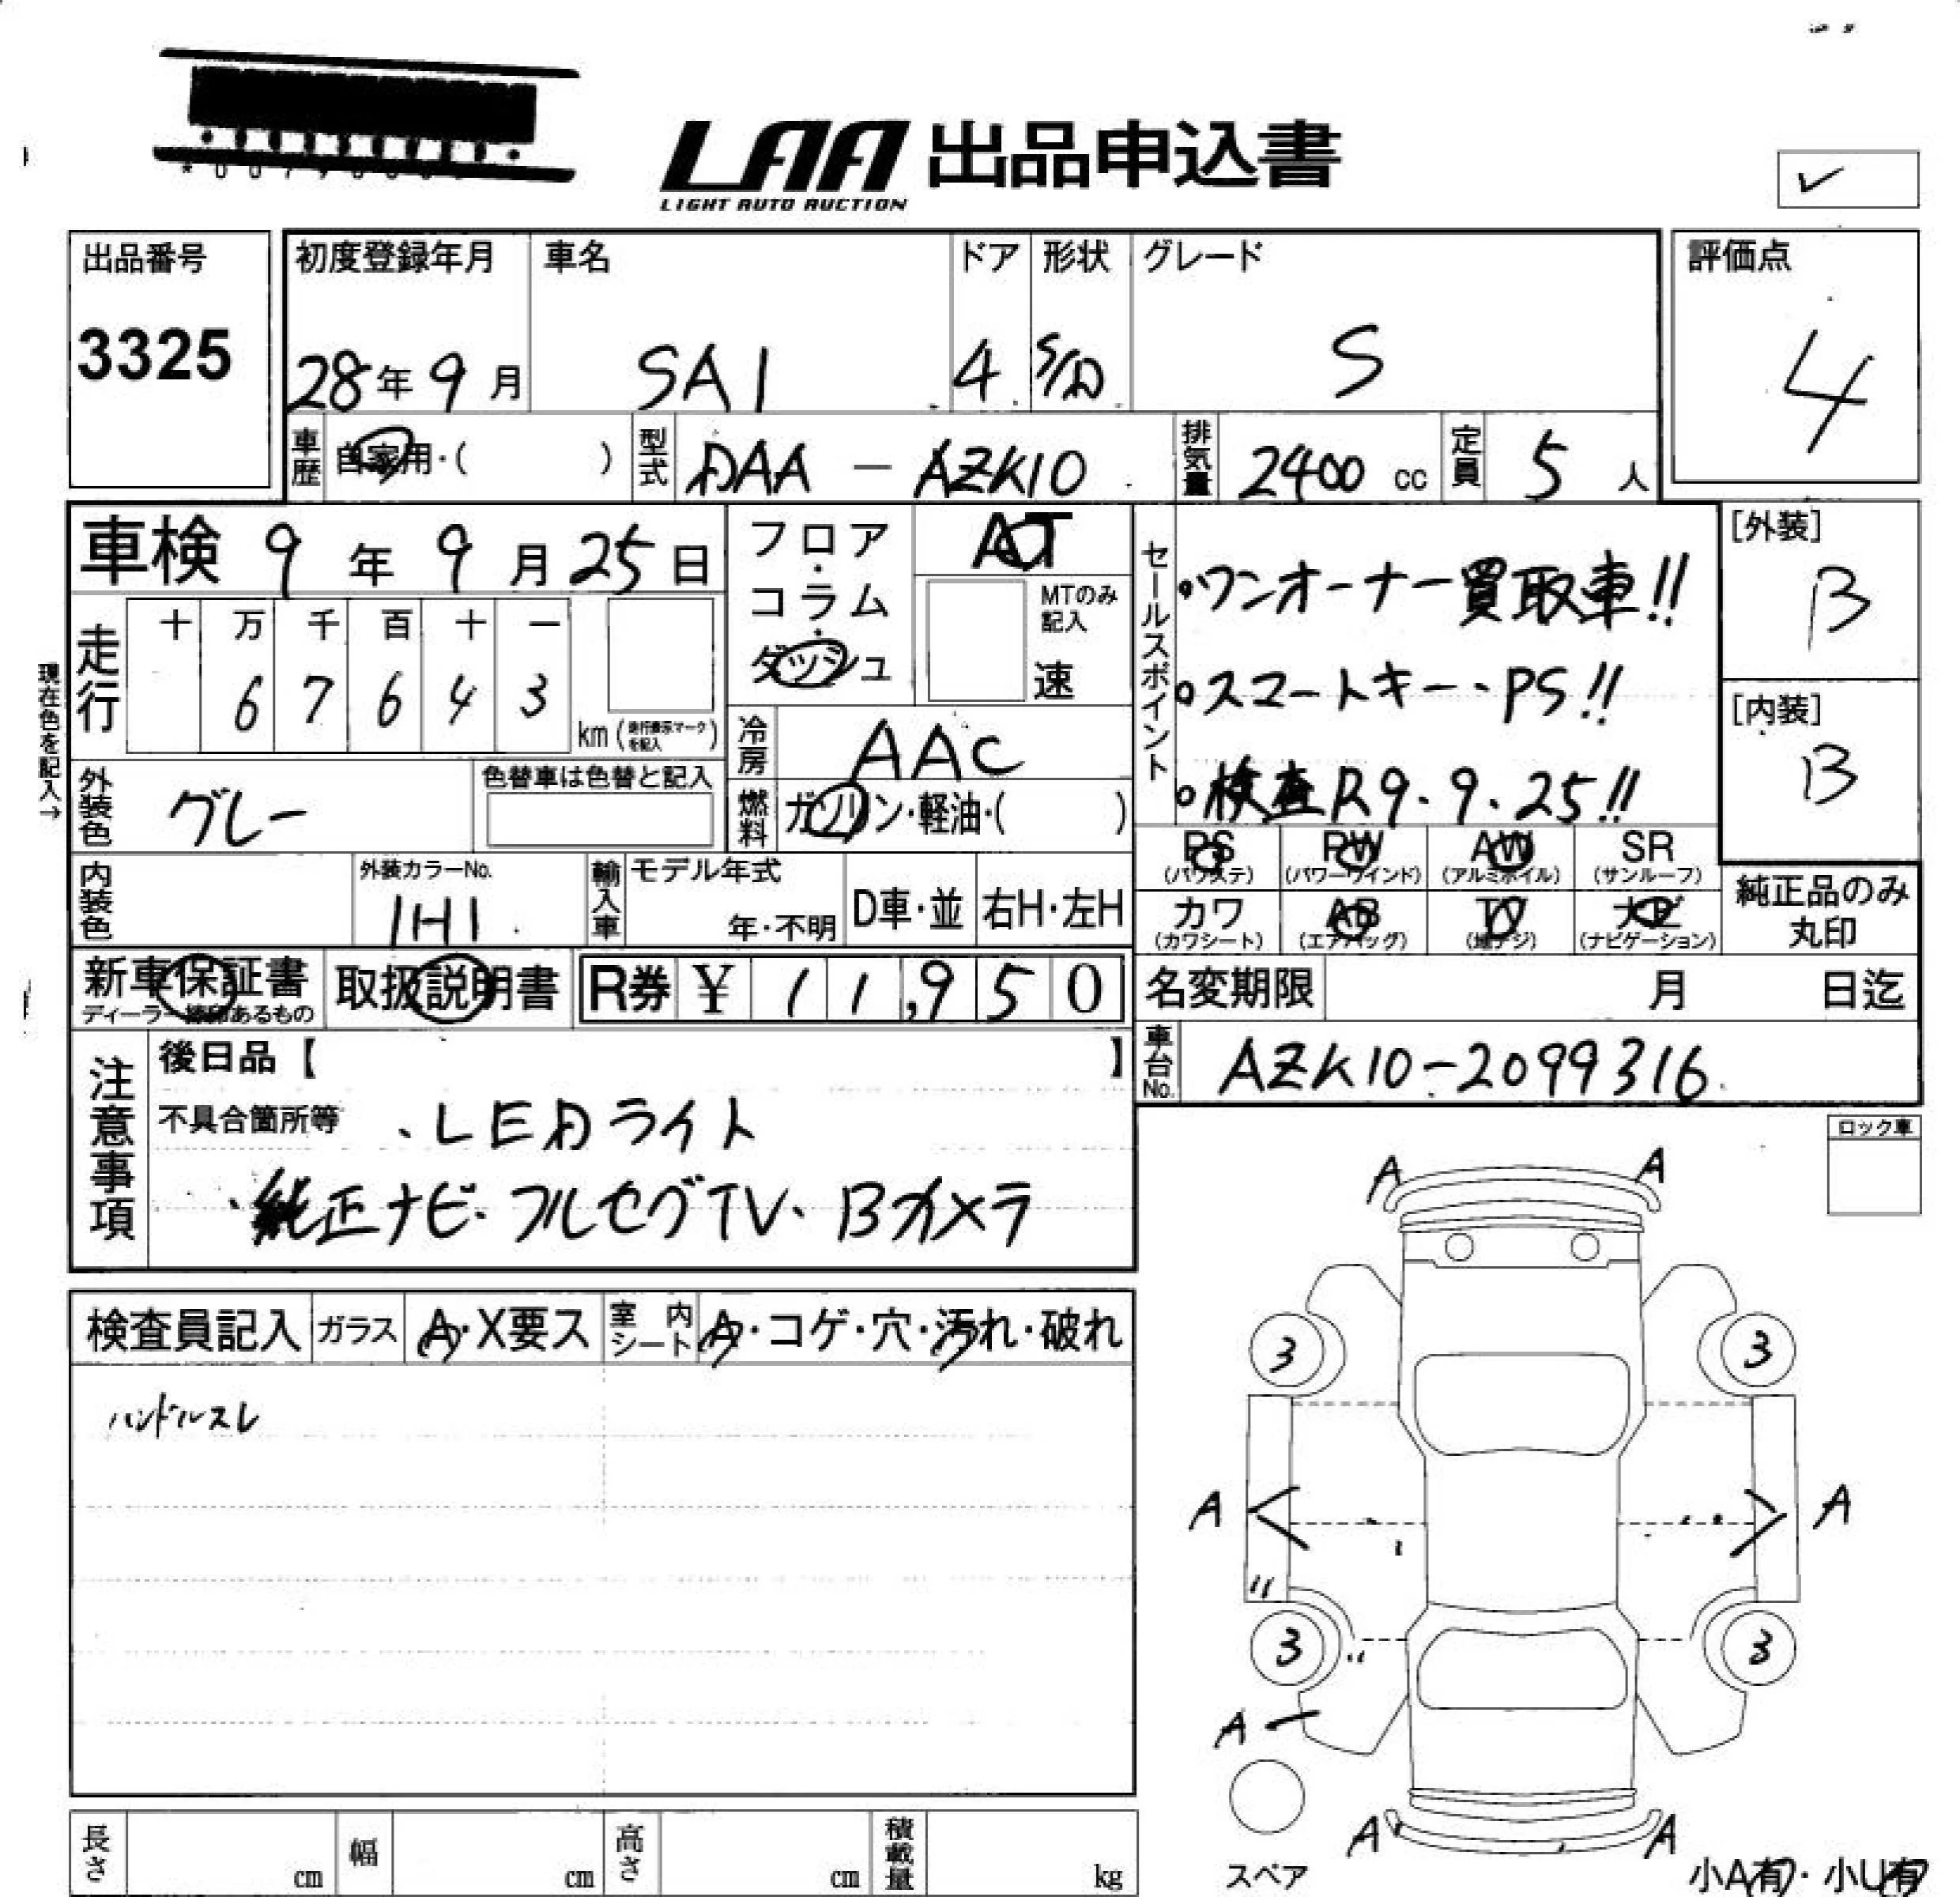 LAA 出品申込書
LIGHT AUTO AUCTION
出品番号 初度登録年月 車名 ドア 形状 グレード 評価点
3325 28年9月 SAI 4 S/D S 4
車歴 自家用・( ) 型式 DAA - AZK10 排気量 2400 cc 定員 5 人
車検 9年9月25日 フロア・コラム・ダッシュ AT
MTのみ記入 速
走行 十 万 千 百 十 一
6 7 6 4 3 km (走行表示マークを記入)
現在色を記入→
外装色 グレー 色替車は色替と記入
冷房 AAC
燃料 ガソリン・軽油・( )
セールスポイント
・ワンオーナー買取車!!
・スマートキー・PS!!
・検査R9.9.25!!
[外装] B
[内装] B
PS (パワステ) PW (パワーウインド) AW (アルミホイル) SR (サンルーフ)
カワ (カワシート) AB (エアバッグ) TV (地デジ) ナビ (ナビゲーション)
純正品のみ丸印
内装色 外装カラーNo. 1H1 輸入車 モデル年式 年・不明 D車・並 右H・左H
新車保証書 取扱説明書 R券 ¥ 11,950
ディーラー捺印あるもの
名変期限 月 日迄
車台No. AZK10-2099316
注意事項
後日品【 】
不具合箇所等 ・LEDライト
・純正ナビ・フルセグTV・Bカメラ
ロック車
検査員記入 ガラス A・X要ス 室内シート A・コゲ・穴・汚れ・破れ
ハンドルスレ
A A
3 3
A A
3 3
A
A A
スペア
小A有・小U有
長さ cm 幅 cm 高さ cm 積載量 kg